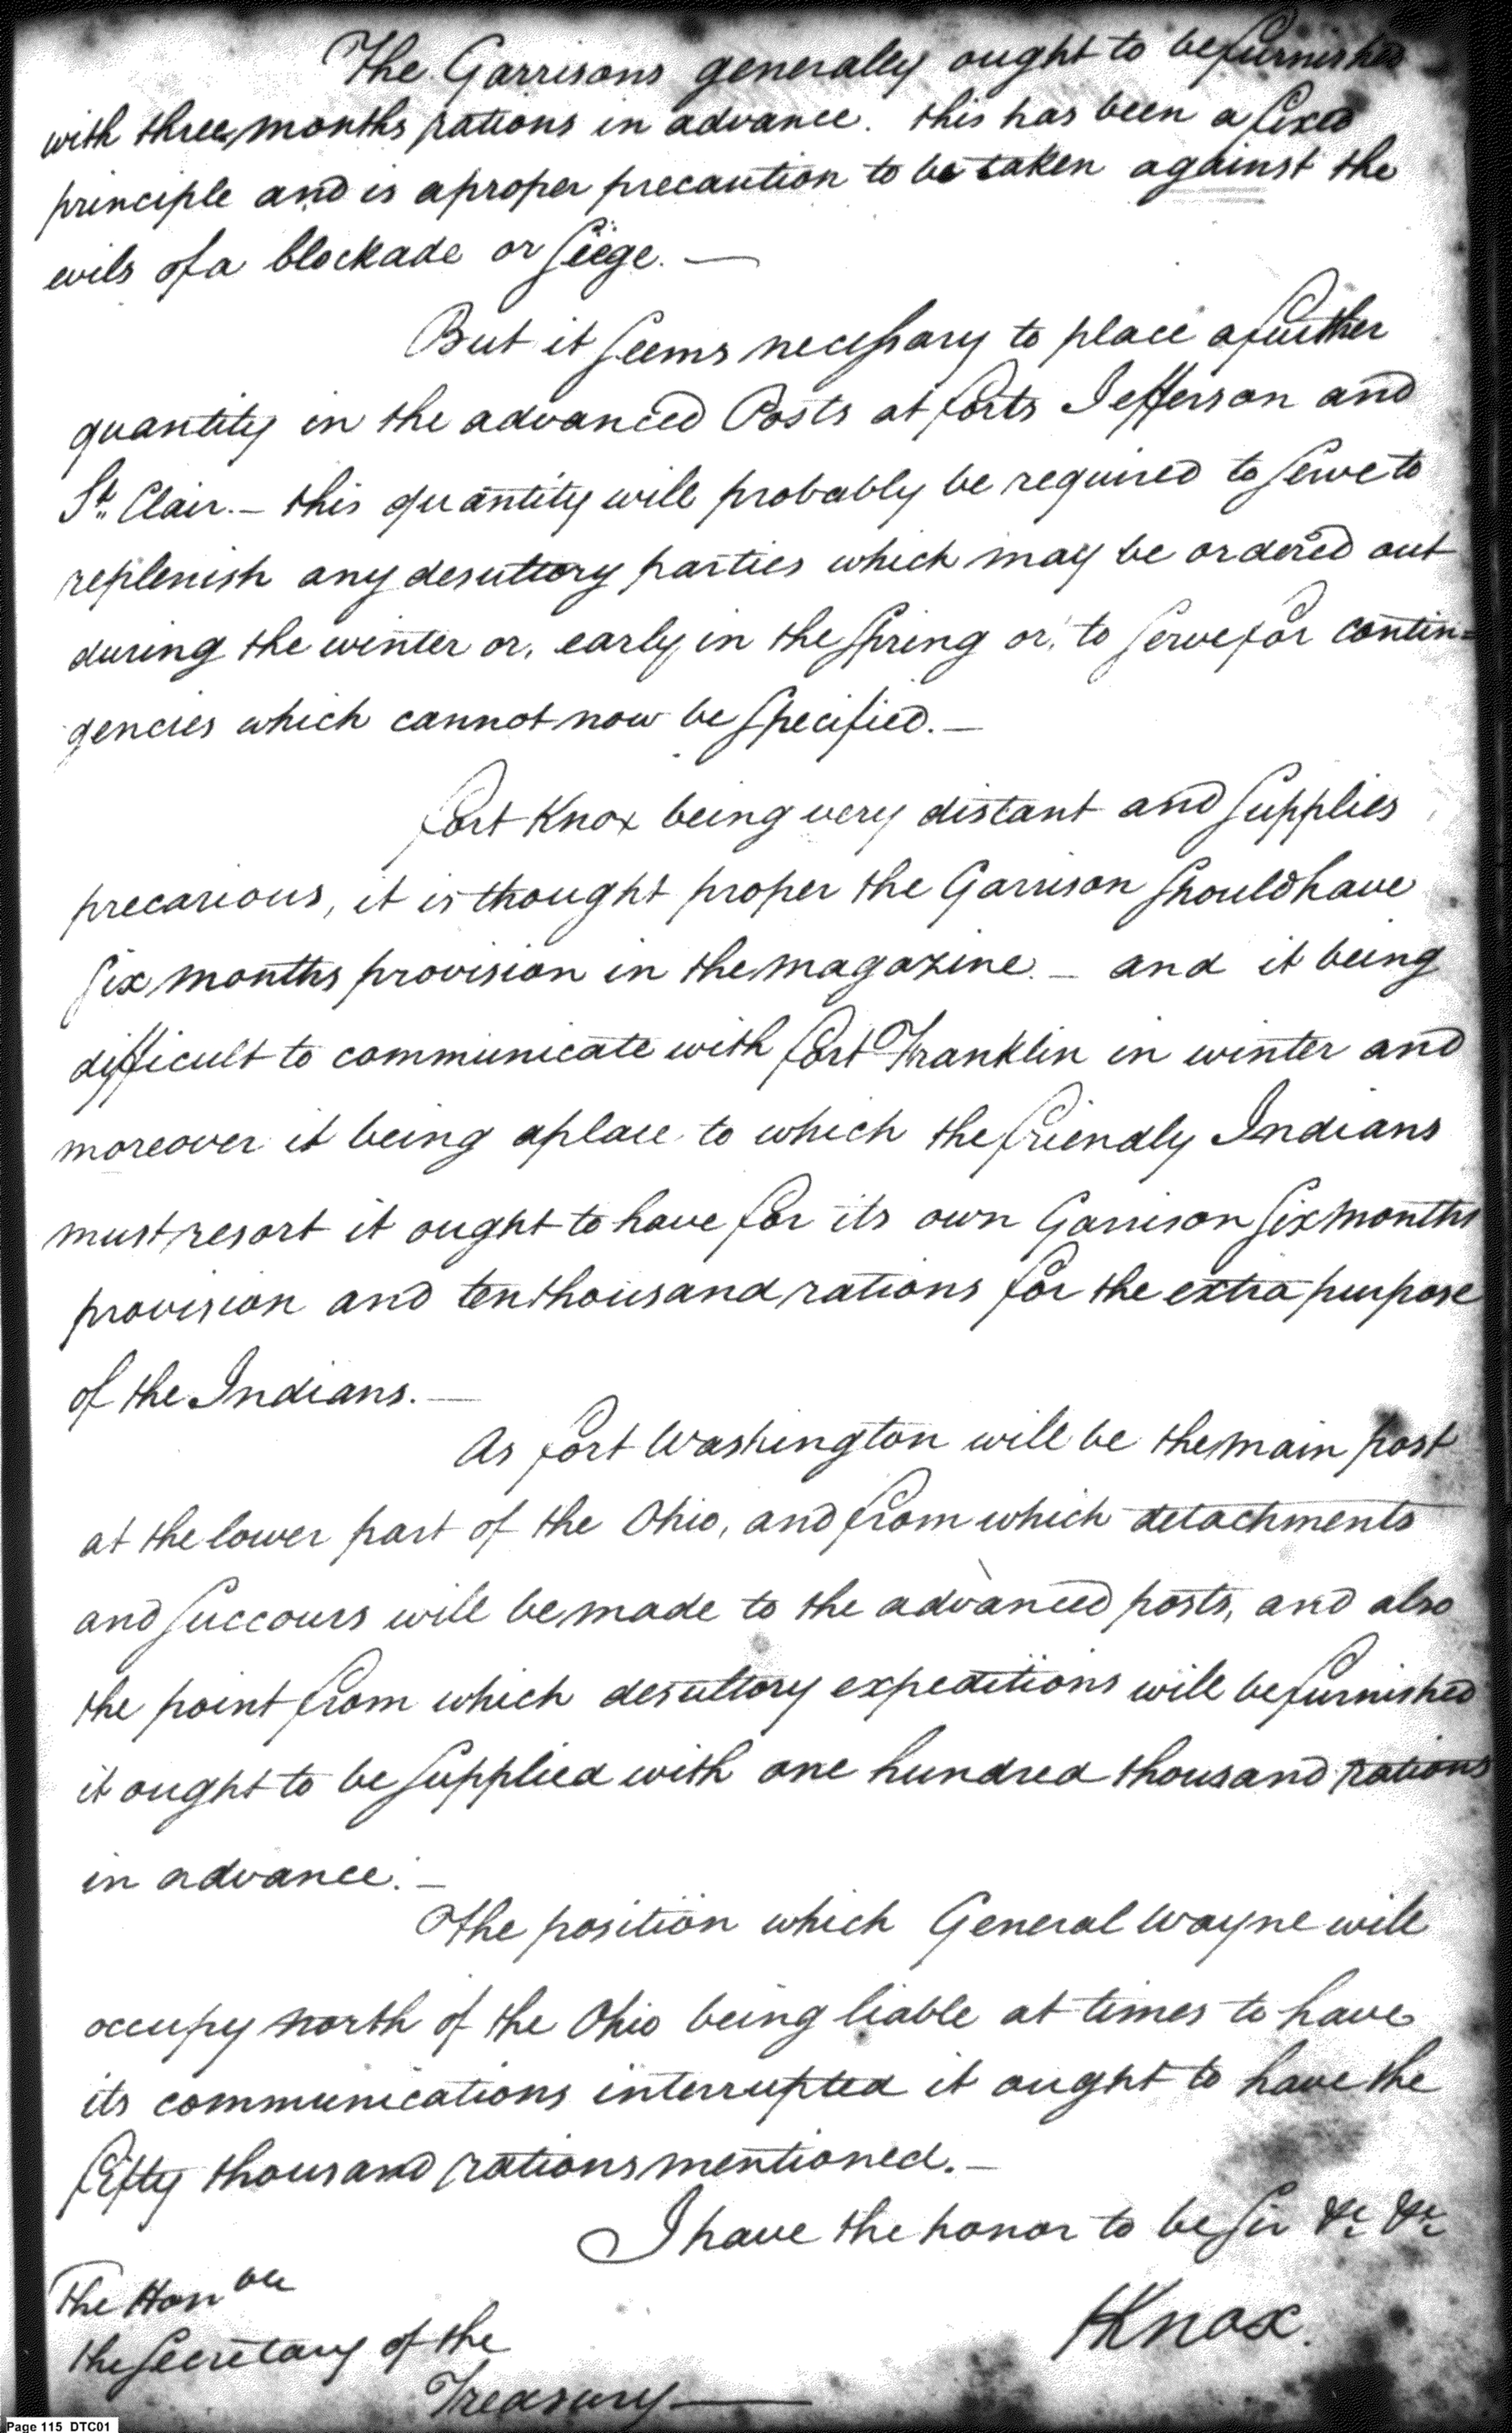 The Garrisons generally ought to be furnished
with three months rations in advance. this has been a fixed
principle and is a proper precaution to be taken against the
evils of a blockade or siege. —
But it seems necessary to place a further
quantity in the advanced Posts at forts Jefferson and
St. Clair. — this quantity will probably be required to serve to
replenish any desultory parties which may be ordered out
during the winter or, early in the spring or, to serve for contin=
gencies which cannot now be specified. —
Fort Knox being very distant and supplies
precarious, it is thought proper the Garrison should have
six months provision in the magazine. — and it being
difficult to communicate with Fort Franklin in winter and
moreover it being a place to which the friendly Indians
must resort it ought to have for its own Garrison six months
provision and ten thousand rations for the extra purpose
of the Indians. —
As fort Washington will be the main post
at the lower part of the Ohio, and from which detachments
and succours will be made to the advanced posts, and also
the point from which desultory expeditions will be furnished
it ought to be supplied with one hundred thousand rations
in advance. —
The position which General Wayne will
occupy north of the Ohio being liable at times to have
its communications interrupted it ought to have the
fifty thousand rations mentioned. —
I have the honor to be Sir &c &c
HKnox.
The Honble
the Secretary of the
Treasury —
Page 115 DTC01